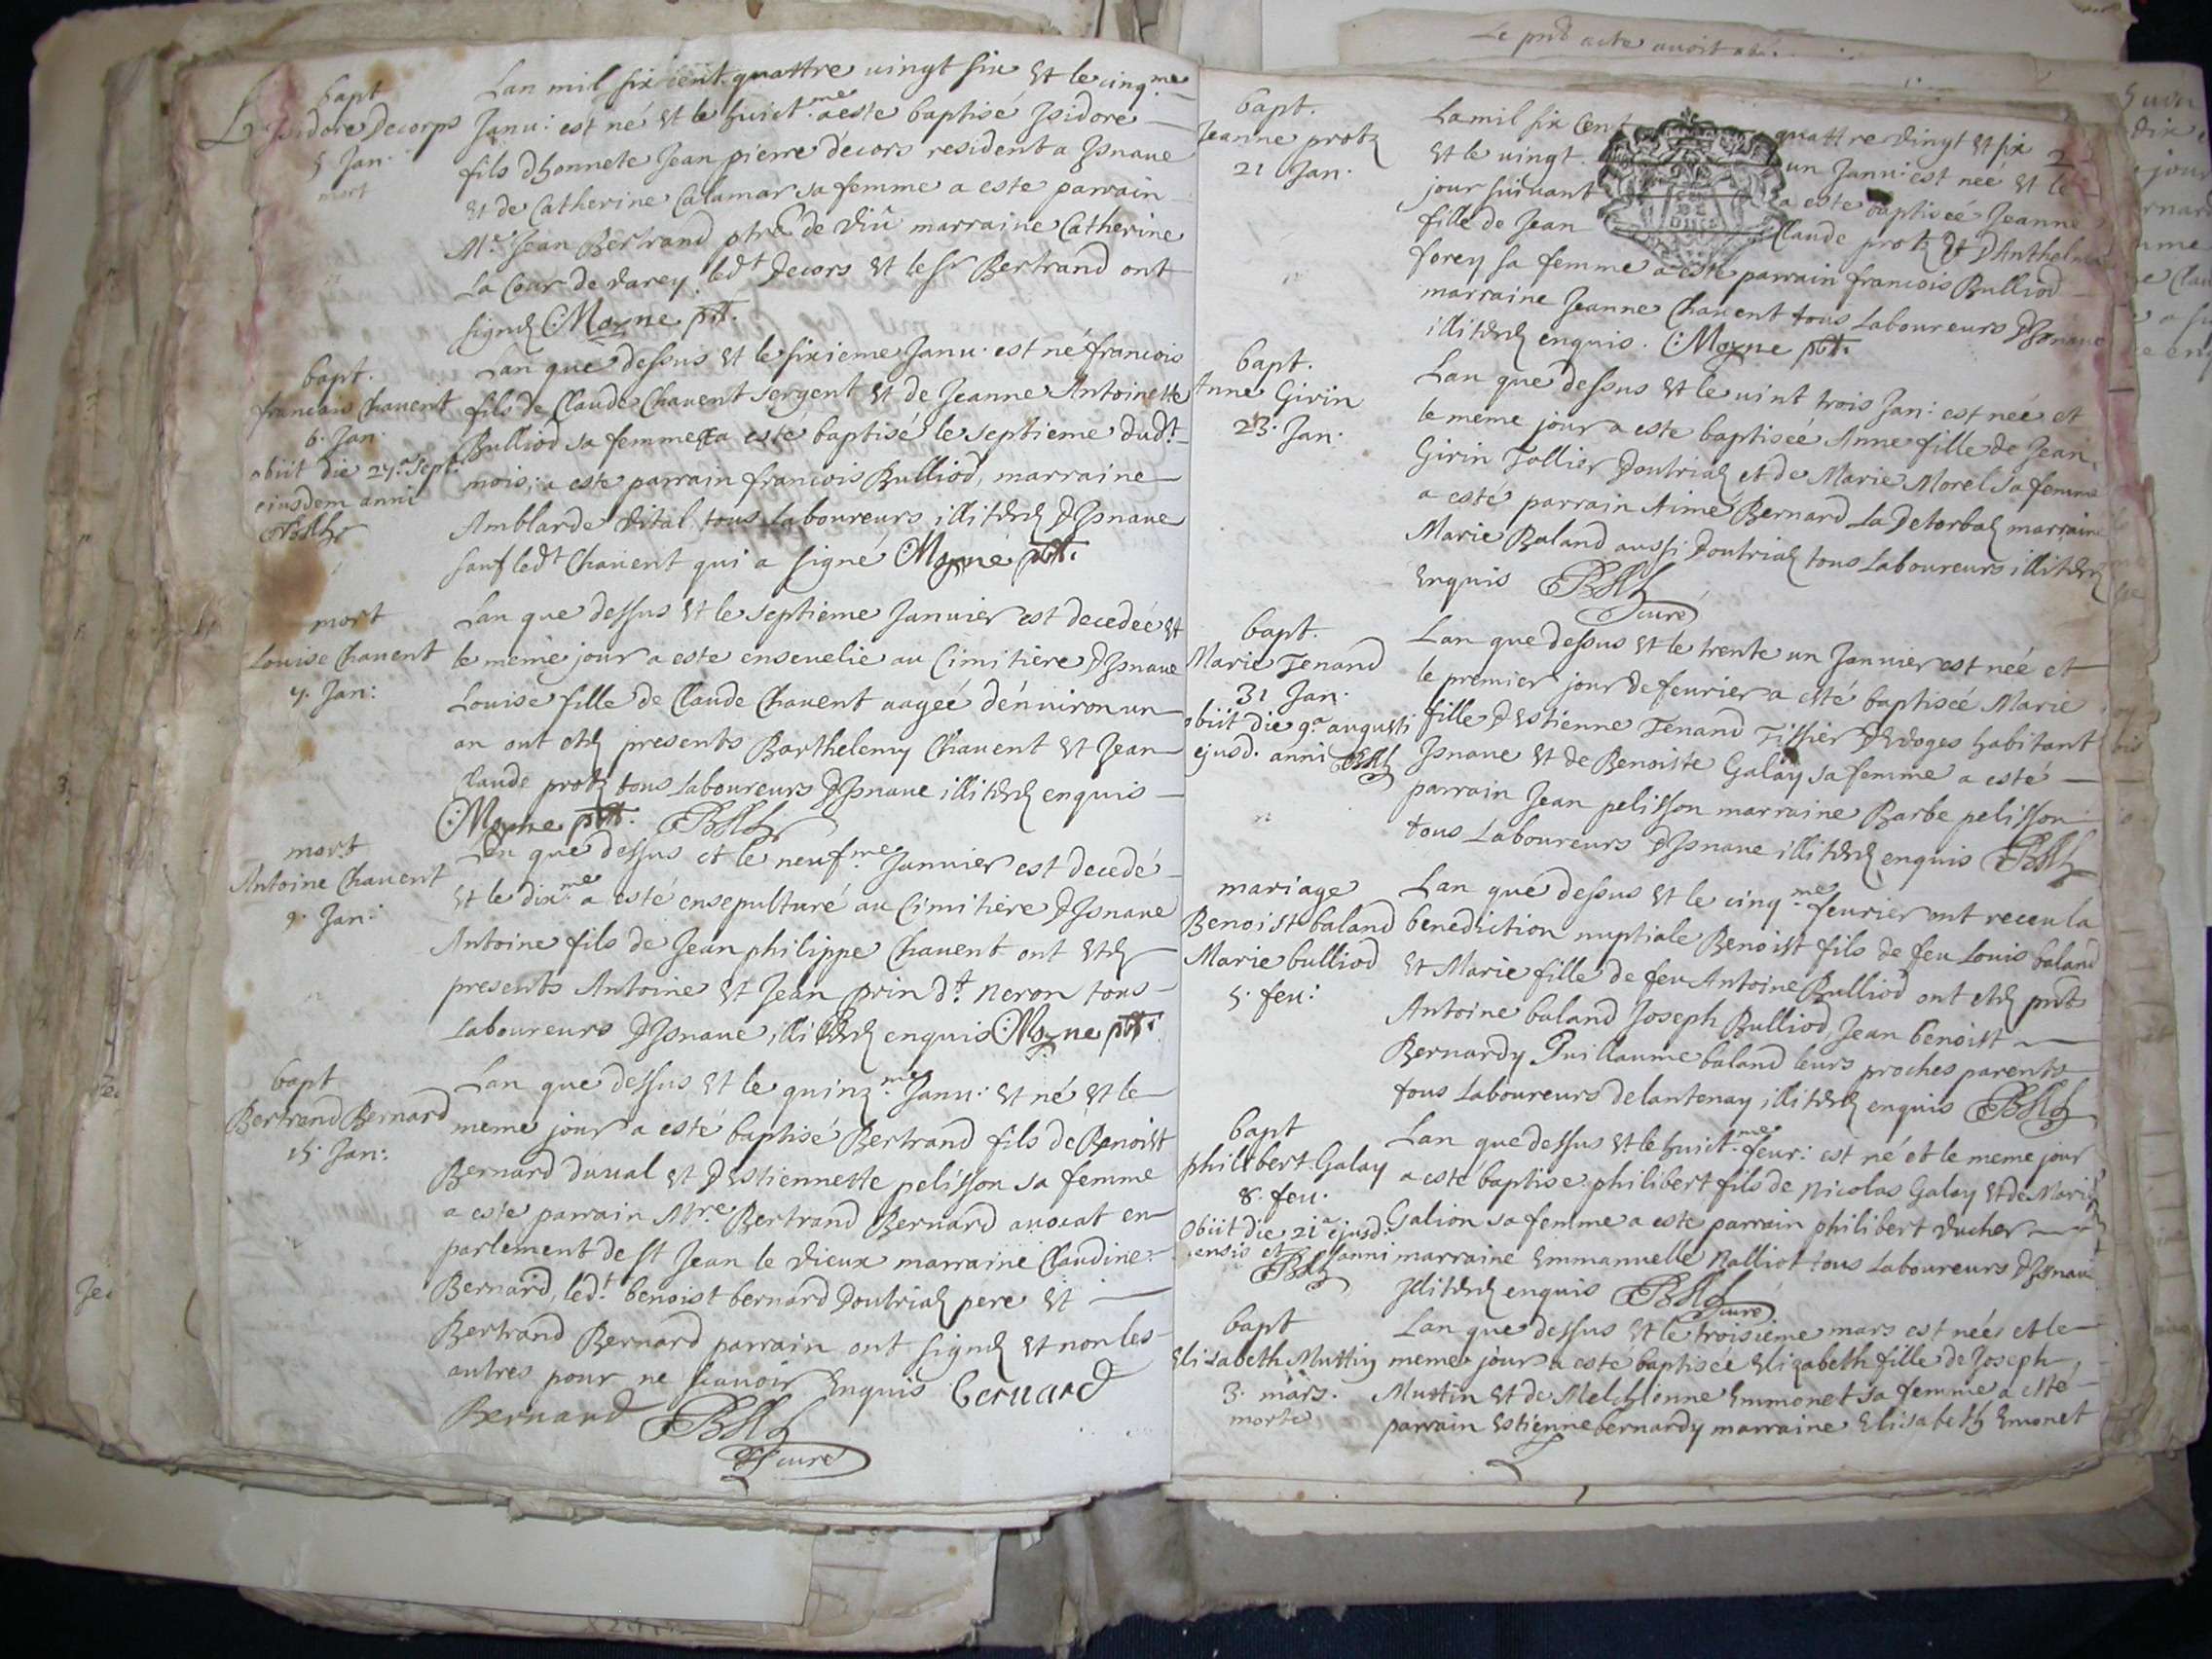 Le pnt acte avoit esté
bapt
Isidore Decorps
5 Jan.
mort
Lan mil six cent quattre vingt six et le cinq.me
Janu: est né et le huict.me a este baptisé Isidore
fils dhonnete Jean pierre décors resident a Isnaue
et de Catherine Calamar sa femme a este parrain
Mre Jean Bertrand ptre de Viû marraine Catherine
La Cour de Varey. ledt Decors et le Sr Bertrand ont
signéz Moyne pbt.
bapt.
francois Chauent
6. Jan.
obiit die 27.a sept.
eiusdem anni
Lan que dessus et le sixieme Janu. est né francois
fils de Claude Chauent sergent et de Jeanne Antoinette
Bulliod sa femme et a esté baptisé le septieme dudt
mois; a este parrain francois Bulliod, marraine
Amblarde Vital tous laboureurs illiteréz d'Isnaue
sauf ledt Chauent qui a signé Moyne pbt.
mort
Louise Chauent
7. Jan:
Lan que dessus et le septieme Januier est decedeé et
le meme jour a este enseuelie au Cimitière d'Isnaue
Louise fille de Claude Chauent aageé dénuiron un
an ont etéz presents Barthelemy Chauent et Jean
Claude protz tous laboureurs d'Isnaue illiteréz enquis
Moyne pbt.
mort
Antoine Chauent
9. Jan:
Lan que dessus et le neuf.me Januier est decedé
et le dix.me a esté ensepulturé au Cimitière d'Isnaue
Antoine fils de Jean philippe Chauent ont etéz
presents Antoine et Jean prin dt. Neron tous
Laboureurs d'Isnaue, illiteréz enquis Moyne pbt.
bapt
Bertrand Bernard
15. Jan:
Lan que dessus et le quinz.me Janu: et né et le
meme jour a esté baptisé Bertrand fils de Benoist
Bernard duual et d'Estiennette pelisson sa femme
a este parrain Mre. Bertrand Bernard auocat en
parlement de St Jean le Vieux marraine Claudine
Bernard, ledt. benoist bernard doutriaz pere et
Bertrand Bernard parrain ont signéz et non les
autres pour ne scauoir Enquis bernard
Bernard
curé
2
bapt.
Jeanne protz
21 Jan.
Lamil six Cent quattre Vingt et six
et le vingt un Janu: est neé et le
jour suiuant a esté baptiseé Jeanne
fille de Jean Claude protz et d'Anthelma
forey sa femme a esté parrain francois Bulliod
marraine Jeanne Chauent tous Laboureurs d'Isnaue
illiteréz enquis. Moyne pbt.
bapt.
Anne Girin
23. Jan.
Lan que dessus et le vint trois Jan: est neé et
le meme jour a este baptiseé Anne fille de Jean
Girin Tollier doutriaz et de Marie Morel sa femme
a esté parrain Aimé Bernard La Detorbaz marraine
Marie Baland aussi doutriaz tous Laboureurs illiteréz
Enquis
curé
bapt.
Marie Tenand
31 Jan.
obiit die 9.a augusti
ejusd. anni
Lan que dessus et le trente un Januier est neé et
le premier jour de feurier a esté baptiseé Marie
fille d'Estienne Tenand Tissier d'Evoges habitant
Isnaue et de Benoiste Galay sa femme a esté
parrain Jean pelisson marraine Barbe pelisson
tous Laboureurs d'Isnaue illiteréz enquis
mariage
Benoist baland
Marie bulliod
5. feu:
Lan que dessus et le cinq.me feurier ont receu la
benediction nuptiale Benoist fils de feu Louis baland
et Marie fille de feu Antoine Bulliod ont etéz pnts
Antoine baland Joseph Bulliod, Jean benoist
Bernardy Guillaume baland leurs proches parents
tous Laboureurs de lantenay illiteréz enquis
bapt
philibert Galay
8. feu.
Obiit die 21.a ejusd.
mensis et anni
Lan que dessus et le huict.me feur: est né et le meme jour
a esté baptise philibert fils de Nicolas Galay et de Marie
Galion sa femme a este parrain philibert Vucher
marraine Emmanuelle Ralliot tous Laboureurs d'Isnaue
Illiteréz enquis
curé
bapt
Elizabeth Muttin
3. mars.
morte
Lan que dessus et le troisieme mars est neé et le
meme jour a esté baptiseé Elizabeth fille de Joseph
Muttin et de Melchienne Emmonet sa femme a esté
parrain Estienne bernardy marraine Elisabeth Emonet